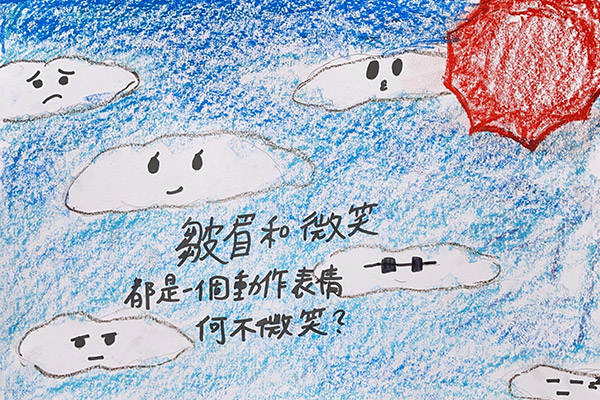 皺眉和微笑
都是一個動作表情
何不微笑?